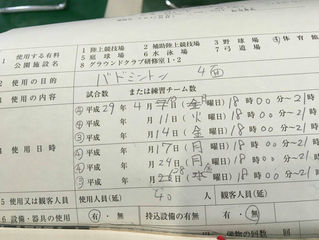 1 使用する有料公園施設名
1 陸上競技場 2 補助陸上競技場 3 野球場 ④体育館
5 庭球場 6 水泳場 7 弓道場
8 グラウンドクラブ研修室1・2
2 使用の目的 バドミントン 4面
使用の内容 試合数 または練習チーム数
使用日時
平成29年4月 曜日)18時00分〜21時
平成 年 月11日(火曜日)18時00分〜21時
平成 年 月14日(金曜日)18時00分〜21時
平成 年 月17日(月曜日)18時00分〜21
平成 年 月24日(月曜日)18時00分〜21
平成 年 月 曜日)18時00分〜21
5 使用又は観客人員 使用人員(延) 40 人 観客人員(延)
6 設備・器具の使用 有・無 持込設備の有無 有・無